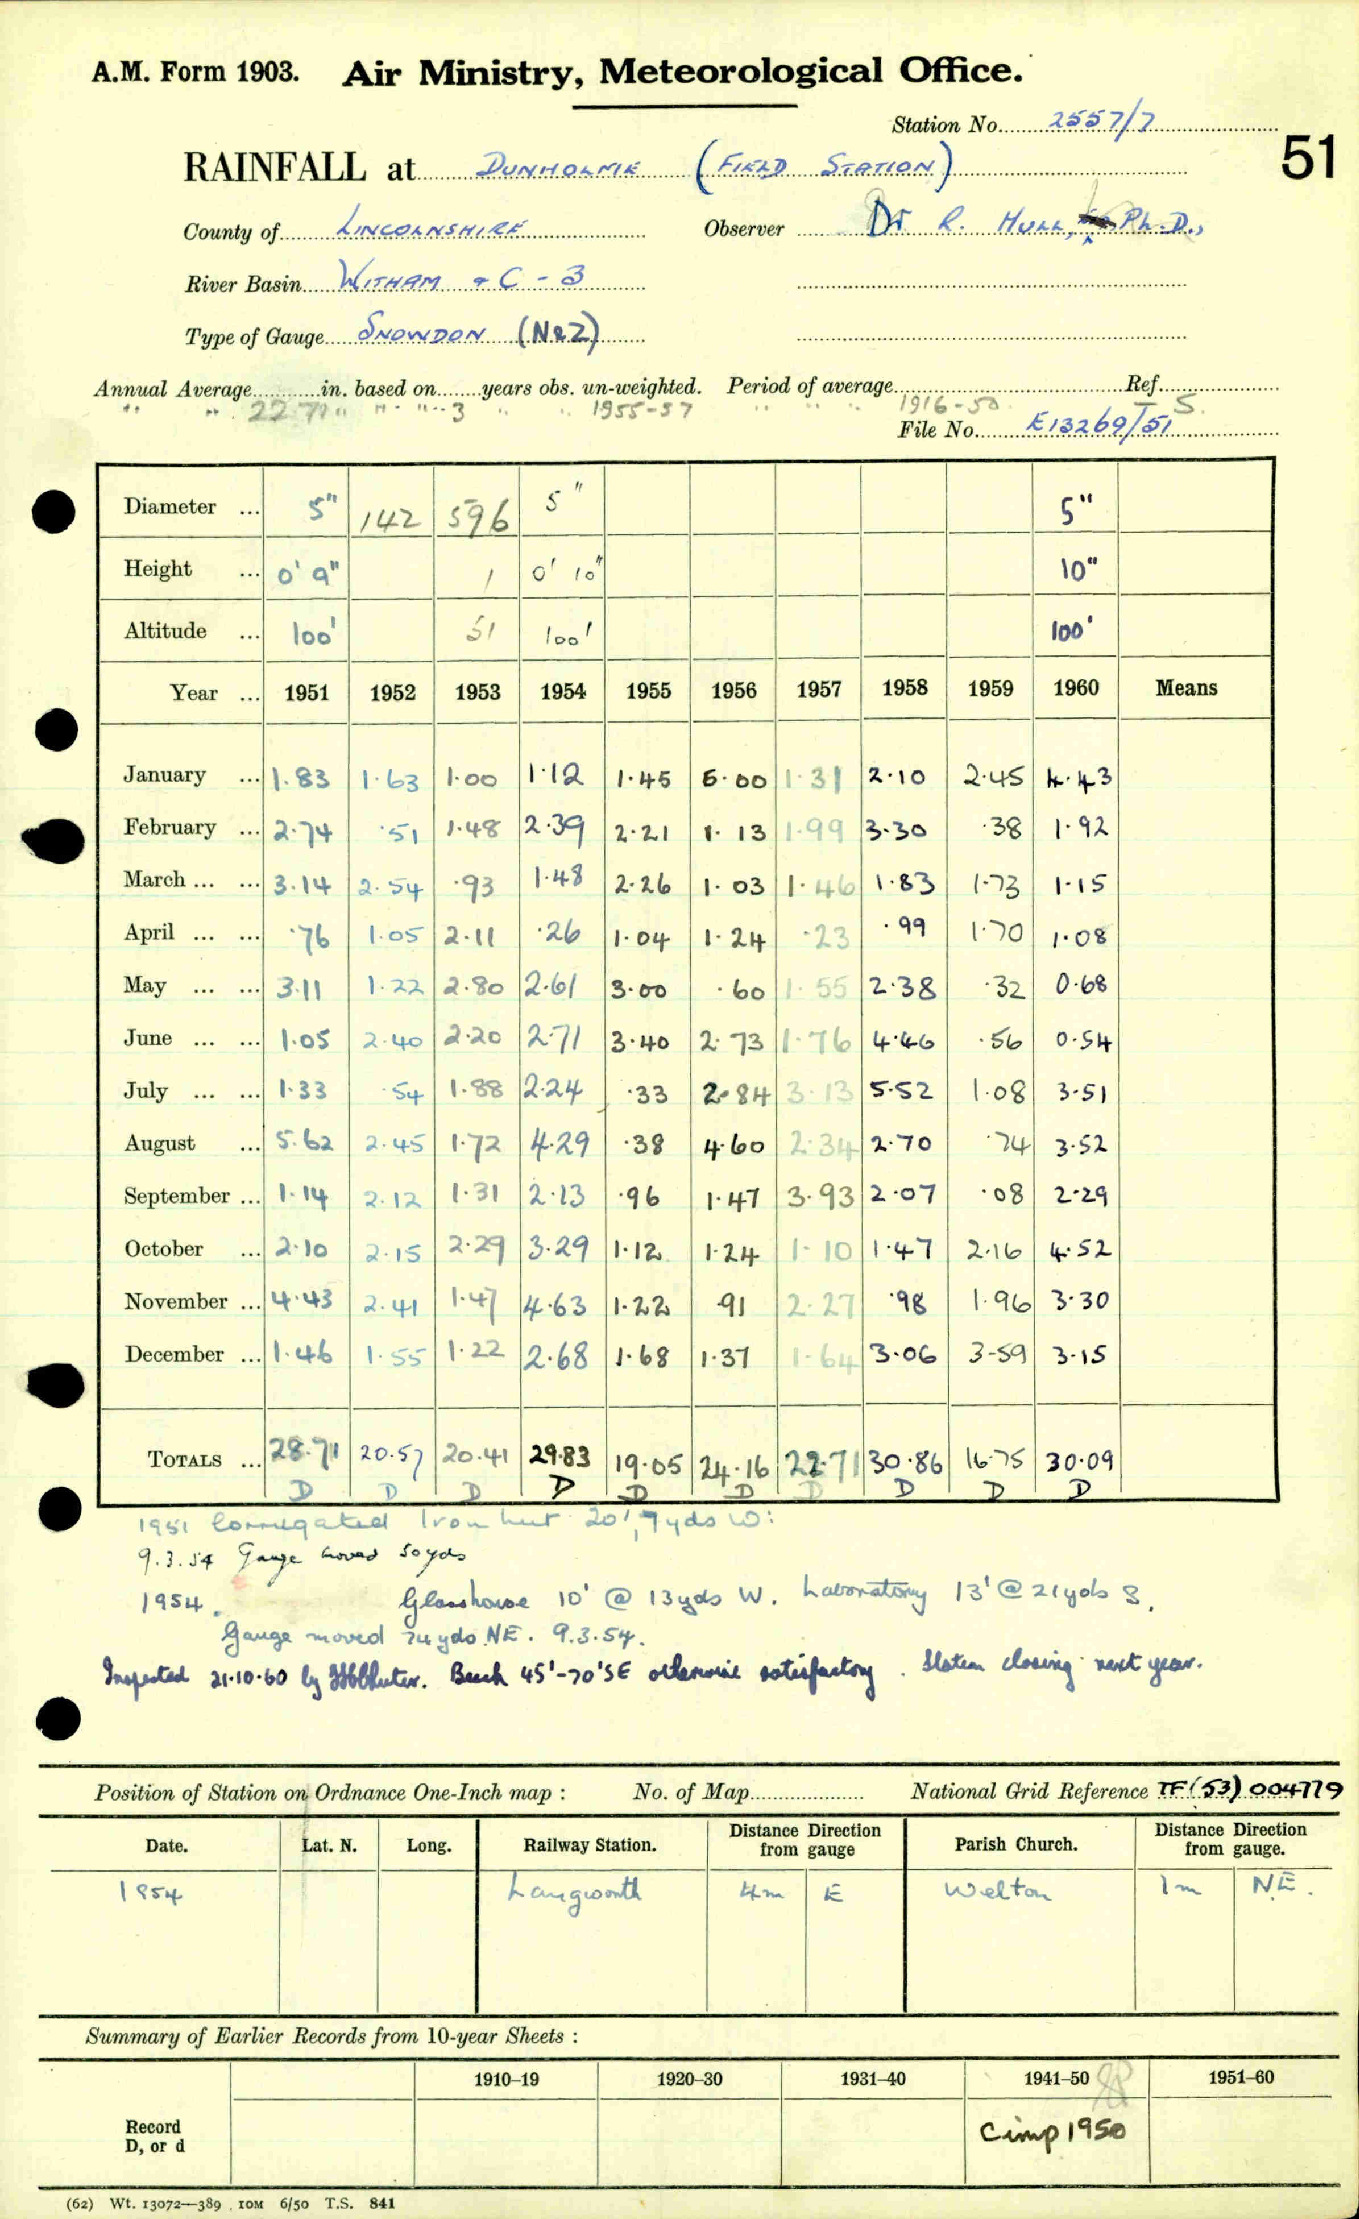 A.M. Form 1903. Air Ministry, Meteorological Office.
Station No. 2557/7
51
RAINFALL at DUNHOLME (FIELD STATION)
County of LINCOLNSHIRE Observer Dr R. HULL, Ph.D.,
River Basin WITHAM & C - 3
Type of Gauge SNOWDON (No2)
Annual Average in. based on years obs. un-weighted. Period of average Ref.
" " 22.71" " " 3 " " 1955-57 " " " 1916-50 S.
File No. E13269/51
Diameter ... 5" 142 596 5" 5"
Height ... 0' 9" 1 0' 10" 10"
Altitude ... 100' 51 100' 100'
Year ... 1951 1952 1953 1954 1955 1956 1957 1958 1959 1960 Means
January ... 1.83 1.63 1.00 1.12 1.45 5.00 1.31 2.10 2.45 4.43
February ... 2.74 .51 1.48 2.39 2.21 1.13 1.99 3.30 .38 1.92
March ... ... 3.14 2.54 .93 1.48 2.26 1.03 1.46 1.83 1.73 1.15
April ... ... .76 1.05 2.11 .26 1.04 1.24 .23 .99 1.70 1.08
May ... ... 3.11 1.22 2.80 2.61 3.00 .60 1.55 2.38 .32 0.68
June ... ... 1.05 2.40 2.20 2.71 3.40 2.73 1.76 4.46 .56 0.54
July ... ... 1.33 .54 1.88 2.24 .33 2.84 3.13 5.52 1.08 3.51
August ... 5.62 2.45 1.72 4.29 .38 4.60 2.34 2.70 .74 3.52
September ... 1.14 2.12 1.31 2.13 .96 1.47 3.93 2.07 .08 2.29
October ... 2.10 2.15 2.29 3.29 1.12 1.24 1.10 1.47 2.16 4.52
November ... 4.43 2.41 1.47 4.63 1.22 .91 2.27 .98 1.96 3.30
December ... 1.46 1.55 1.22 2.68 1.68 1.37 1.64 3.06 3.59 3.15
TOTALS ... 28.71 20.57 20.41 29.83 19.05 24.16 22.71 30.86 16.75 30.09
D D D D D D D D D D
1951 Corrugated Iron hut 20', 7yds W:
9.3.54 Gauge moved 50yds
1954. Glasshouse 10' @ 13yds W. Laboratory 13' @ 21yds S.
Gauge moved 74yds NE. 9.3.54.
Inspected 21.10.60 by Beech 45'-70'SE otherwise satisfactory. Station closing next year.
Position of Station on Ordnance One-Inch map : No. of Map National Grid Reference TF(53)004779
Date. Lat. N. Long. Railway Station. Distance Direction from gauge Parish Church. Distance Direction from gauge.
1954 Langworth 4m E Welton 1m NE.
Summary of Earlier Records from 10-year Sheets :
1910–19 1920–30 1931–40 1941–50 1951–60
Record
D, or d
Cimp 1950
(62) Wt. 13072—389 10M 6/50 T.S. 841